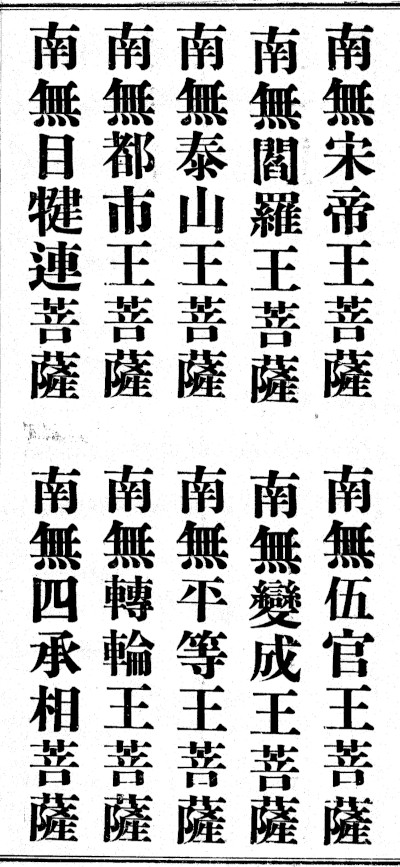 南無宋帝王菩薩
南無伍官王菩薩
南無閻羅王菩薩
南無變成王菩薩
南無泰山王菩薩
南無平等王菩薩
南無都市王菩薩
南無轉輪王菩薩
南無目犍連菩薩
南無四承相菩薩